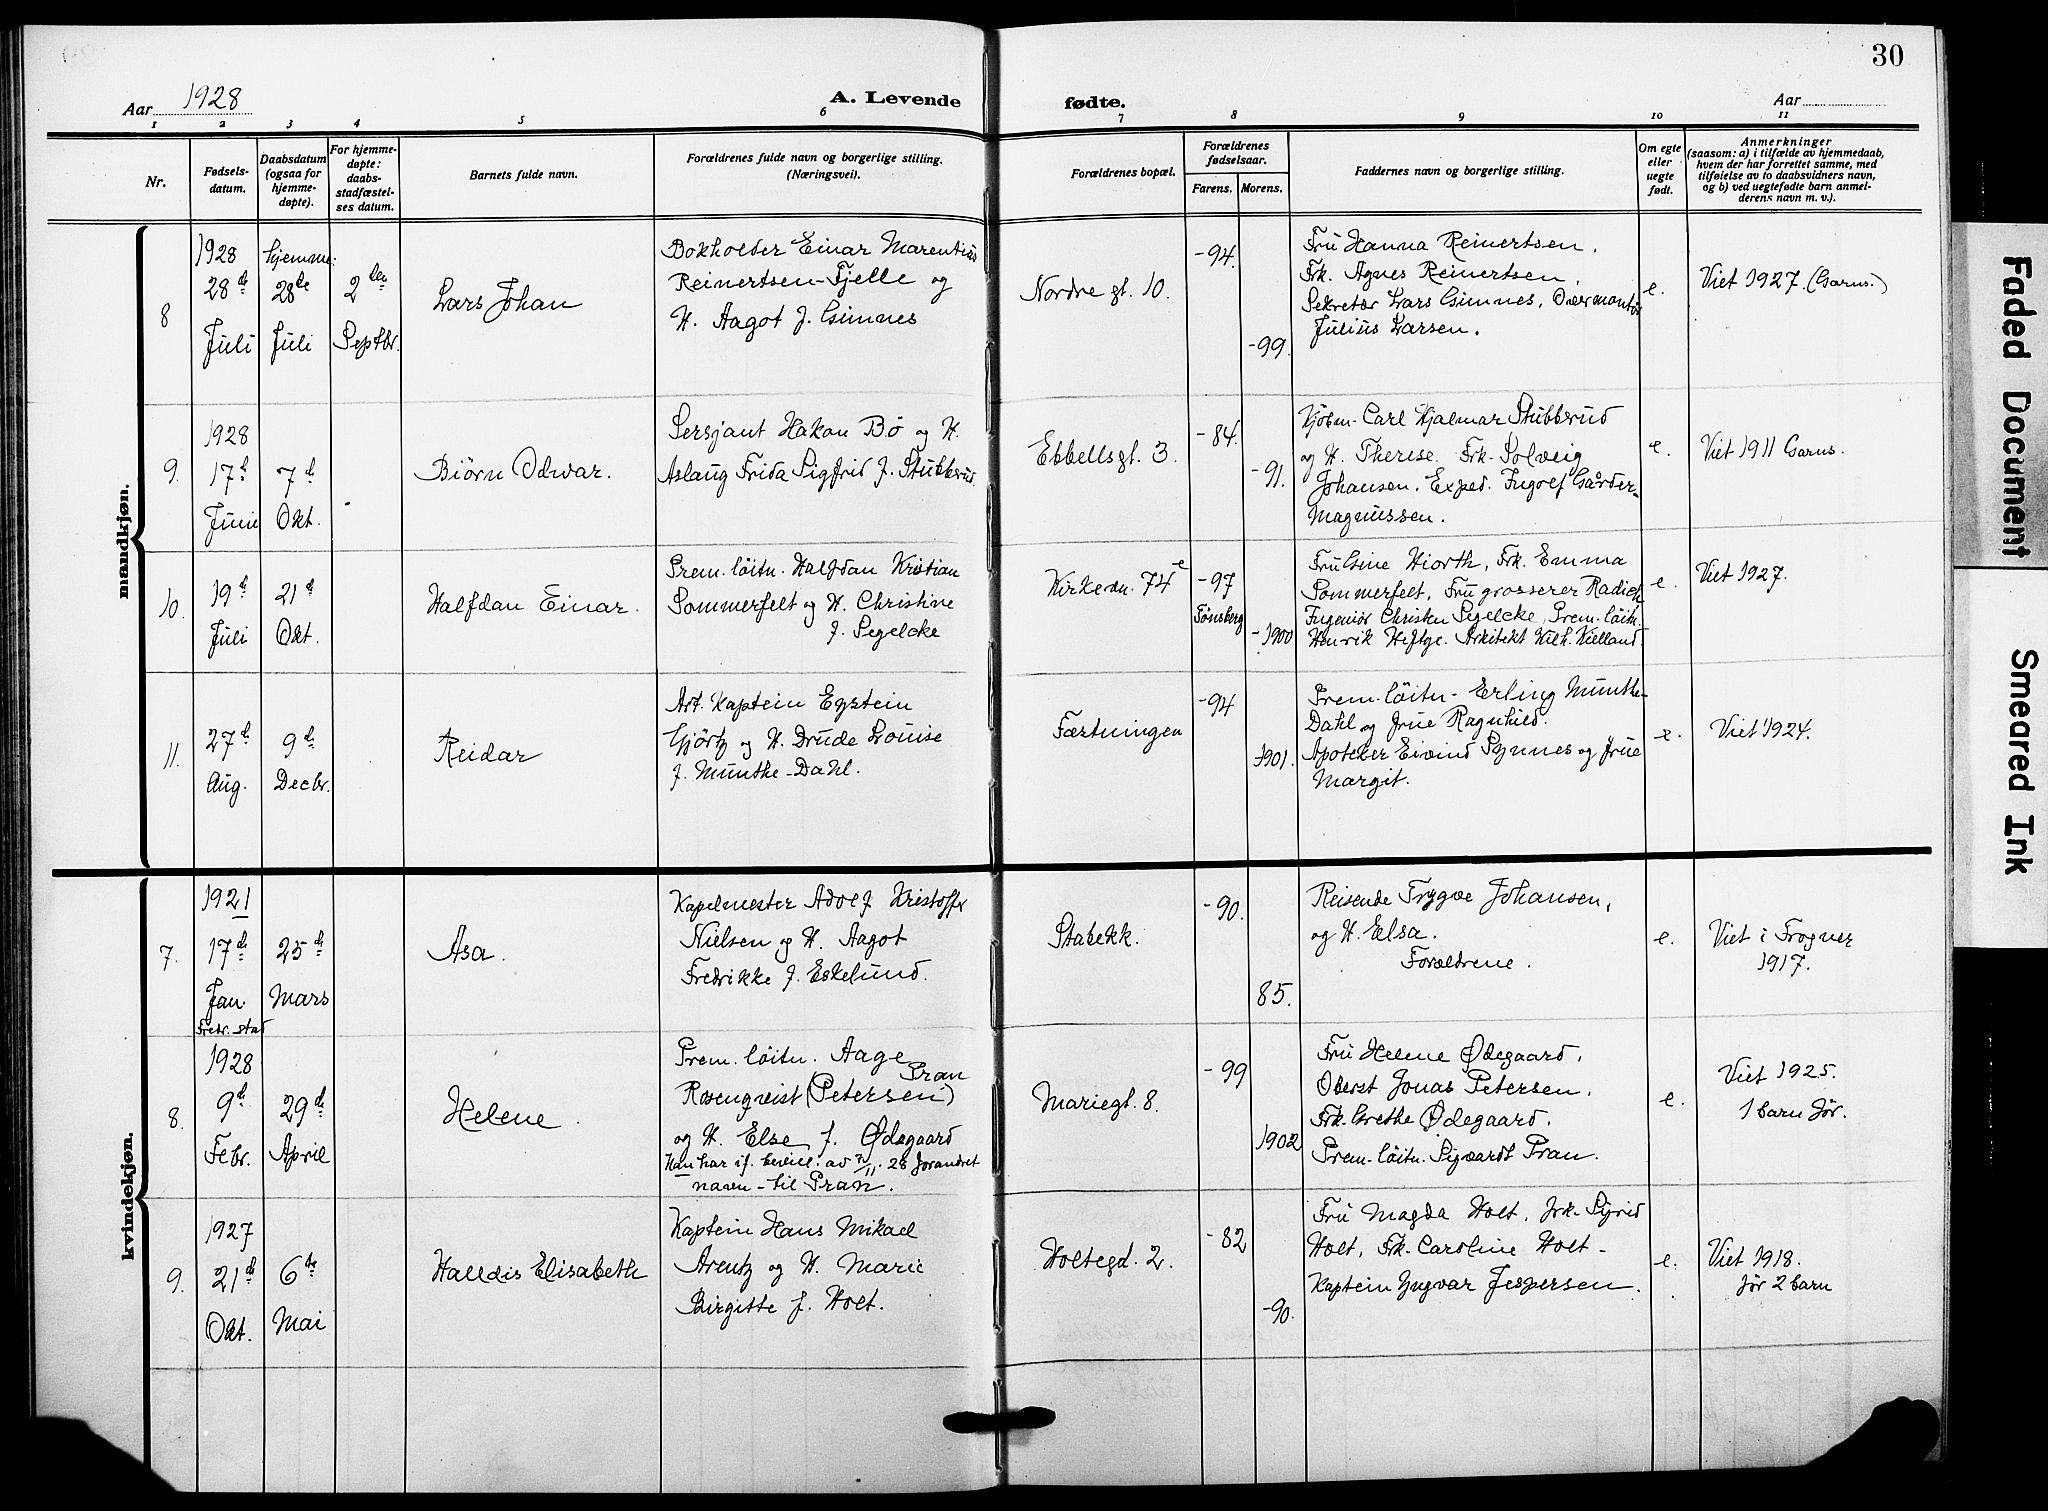 30
Aar 1928
A. Levende fødte.
Aar
1 2 3 4 5 6 7 8 9 10 11
Nr.
Fødsels-
datum.
Daabsdatum
(ogsaa for
hjemme-
døpte).
For hjemme-
døpte:
daabs-
stadfæstel-
ses datum.
Barnets fulde navn.
Forældrenes fulde navn og borgerlige stilling.
(Næringsvei).
Forældrenes bopæl.
Forældrenes
fødselsaar.
Farens. Morens.
Faddernes navn og borgerlige stilling.
Om egte
eller
uegte
født.
Anmerkninger
(saasom: a) i tilfælde av hjemmedaab,
hvem der har forrettet samme, med
tilføielse av to daabsvidners navn,
og b) ved uegtefødte barn anmel-
derens navn m. v.).
mandkjøn.
8
1928
28de
Juli
hjemme:
28de
Juli
2den
Septbr.
Lars Johan
Bokholder Einar Marentius
Reinertsen-Fjelle og
H. Aagot f. Gimnes
Nordre gt. 10.
-94.
-99.
Fru Hanna Reinertsen.
Frk. Agnes Reinertsen.
Sekretær Lars Gimnes, Overmontør
Julius Larsen.
e.
Viet 1927. (Garns.)
9.
1928
17d
Juni
7d
Okt.
Biörn Odvar.
Sersjant Hakon Bö og H.
Aslaug Frida Sigfrid f. Stubberud.
Ebbellsgt. 3.
-84.
-91.
Kjöbm. Carl Hjalmar Stubberud
og H. Therese. Frk. Solveig
Johansen, Exped. Ingolf Gårder-
Magnussen.
e.
Viet 1911 Garns.
10.
19d
Juli
21d
Okt.
Halfdan Einar.
Prem. löitn. Halfdan Kristian
Sommerfelt og H. Christine
f. Segelcke
Kirkevn. 74e
-97
Tønsberg
-1900
Fru Gine Hiorth, Frk. Emma
Sommerfelt, Fru grosserer Radich
Ingeniör Christen Segelcke, Prem. löitn.
Henrik Heftye. Arkitekt Wilh. Kielland.
e.
Viet 1927.
11.
27d
Aug.
9d
Decbr.
Reidar
Art. Kaptein Egstein
Gjörtz og H. Drude Louise
f. Munthe-Dahl.
Fæstningen
-94
-1901.
Prem. löitn. Erling Munthe-
Dahl og frue Ragnhild.
Apoteker Eivind Synnes og frue
Margit.
e.
Viet 1924.
kvindekjøn.
7.
1921
17d
Jan.
Fredr.stad
25d
Mars
Asa.
Kapelmester Adolf Kristoffer
Nielsen og H. Aagot
Fredrikke f. Eskelund.
Stabekk.
-90.
85.
Reisende Trygve Johansen,
og H. Elsa.
Forældrene.
e.
Viet i Frogner
1917.
8.
1928
9d
Febr.
29d
April
Helene.
Prem. löitn. Aage
Pran
Rosenqvist (Petersen)
og H. Else f. Ødegaard
Han har if. bevill. av 7/11. 28 forandret
navn - til Pran.
Mariegt. 8.
-99
1902
Fru Helene Ødegaard.
Oberst Jonas Petersen.
Frk. Grethe Ødegaard.
Prem. löitn. Sigvardt Pran.
e.
Viet 1925.
1 barn før.
9.
1927
21d
Okt.
6te
Mai
Halldis Elisabeth
Kaptein Hans Mikael
Arentz og H. Marie
Birgitte f. Holt.
Holtegd. 2.
-82
-90.
Fru Magda Holt, frk. Sigrid
Holt, Frk. Caroline Holt -
Kaptein Yngvar Jespersen.
e.
Viet 1918.
før 2 barn
Faded Document
Smeared Ink